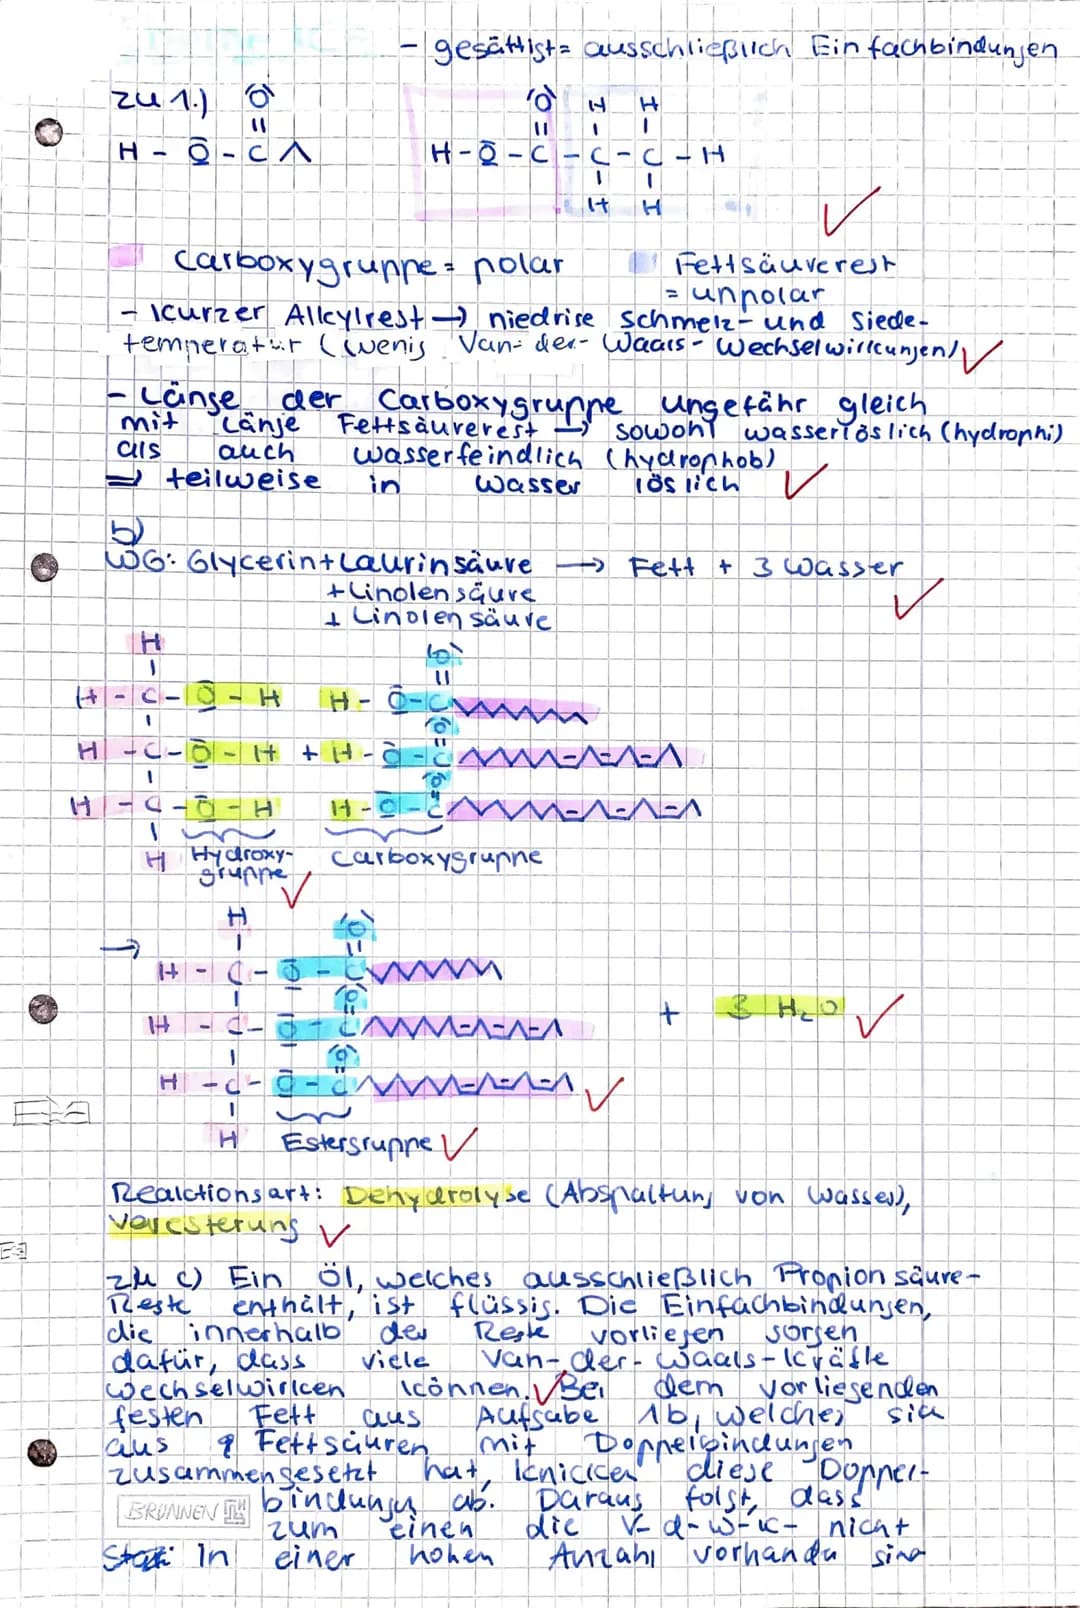 - gesättigt = ausschließlich Einfachbindungen
zu 1.)
H - O - C
H - O - C - C - C - H
Carboxygruppe = polar
Fettsäurerest
= unpolar
- kurzer Alkylrest → niedrige Schmelz- und Siede-
temperatur (wenig Van-der-Waals-Wechselwirkungen)
- Länge der Carboxygruppe ungefähr gleich
mit Länge Fettsäurerest → sowohl wasserlöslich (hydrophil)
als auch wasserfeindlich (hydrophob)
⇒ teilweise in Wasser löslich
b)
WG: Glycerin + Laurinsäure → Fett + 3 Wasser
+ Linolensäure
+ Linolensäure
H
H - C - O - H H - O - C
H - C - O - H + H - O - C
H - C - O - H H - O - C
H Hydroxy-
gruppe
Carboxygruppe
H
→
H - C - O - C
H - C - O - C + 3 H₂O
H - C - O - C
H Estergruppe
Reaktionsart: Dehydrolyse (Abspaltung von Wasser),
Veresterung
zu c) Ein Öl, welches ausschließlich Propionsäure-
Reste enthält, ist flüssig. Die Einfachbindungen,
die innerhalb der Reste vorliegen sorgen
dafür, dass viele Van-der-Waals-Kräfte
wechselwirken können. Bei dem vorliegenden
festen Fett aus Aufgabe 1b, welches sich
aus Fettsäuren mit Doppelbindungen
zusammengesetzt hat, knicken diese Doppel-
bindungen ab. Daraus folgt, dass
BRUNNEN
zum einen die V-d-W-K- nicht
in einer hohen Anzahl vorhanden sind